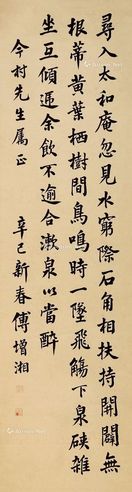 尋入太和庵忽見水窮際石角相扶持開闢無
根蒂黃葉栖樹間鳥鳴時一墜飛觴下泉硤雜
坐互傾遞余飲不逾合漱泉以當醉
今村先生属正
辛巳新春傅增湘